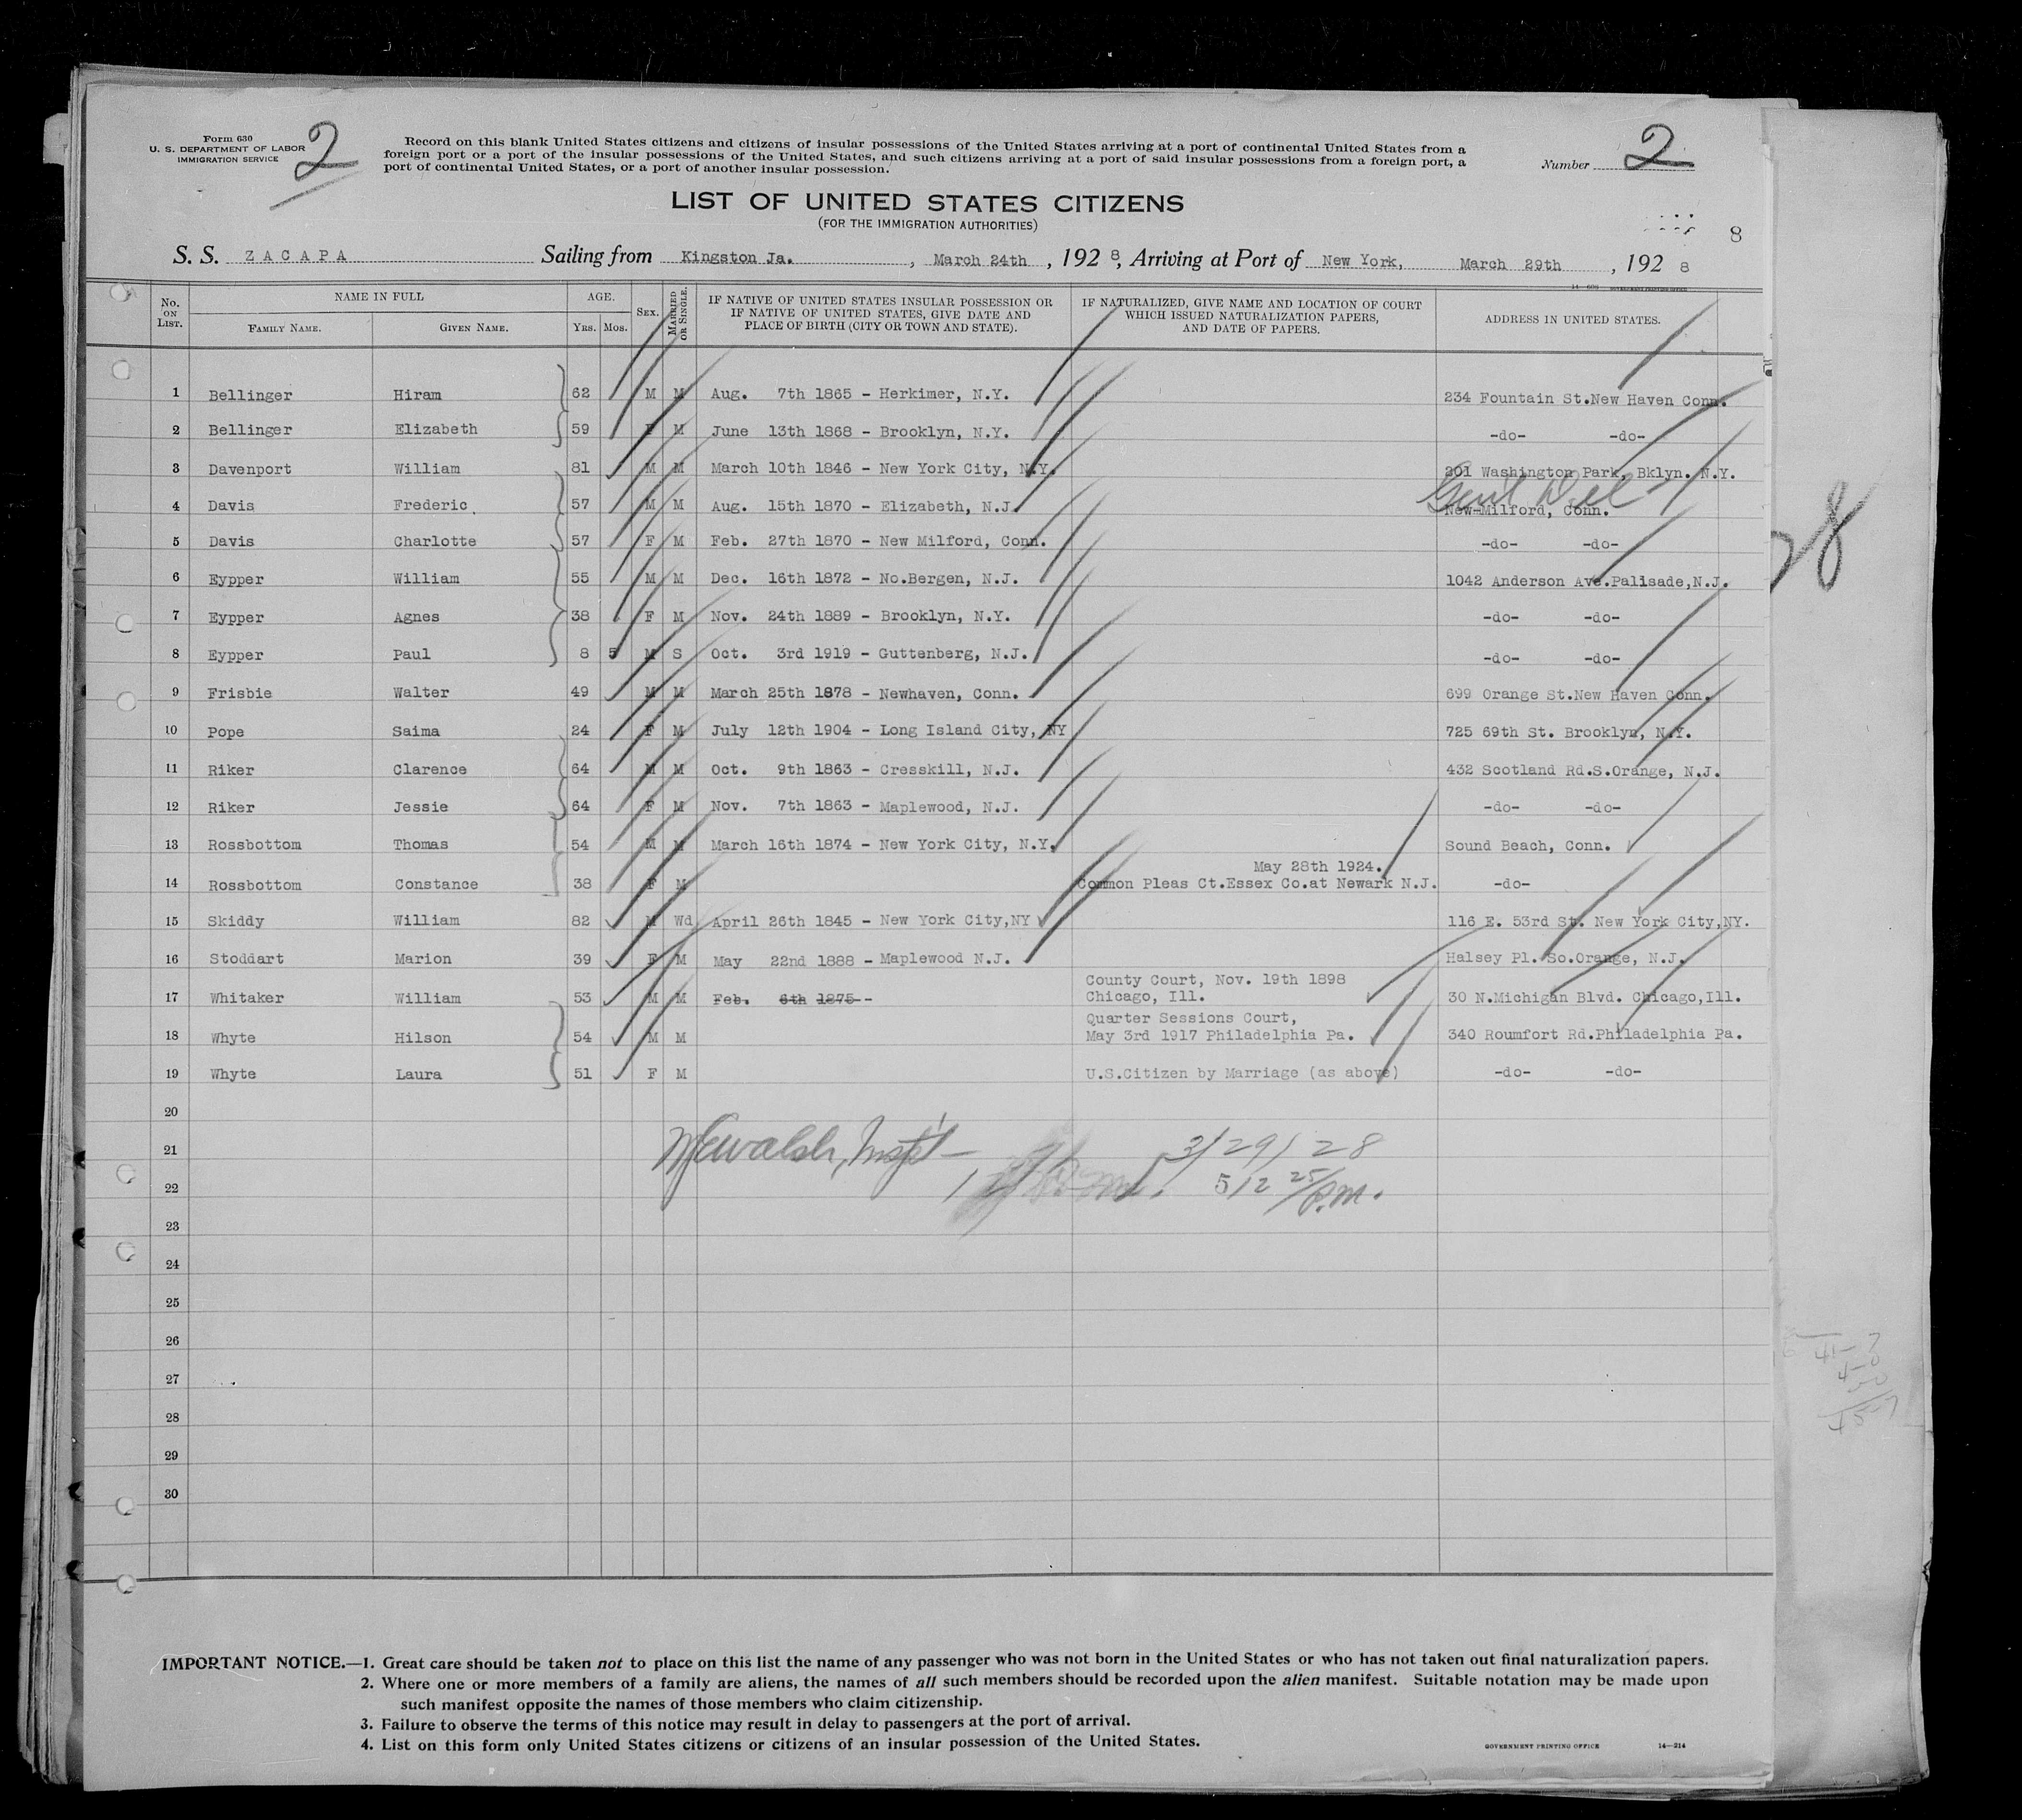 Form 630
U. S. DEPARTMENT OF LABOR
IMMIGRATION SERVICE
2
Record on this blank United States citizens and citizens of insular possessions of the United States arriving at a port of continental United States from a
foreign port or a port of the insular possessions of the United States, and such citizens arriving at a port of said insular possessions from a foreign port, a
port of continental United States, or a port of another insular possession.
Number 2
LIST OF UNITED STATES CITIZENS
(FOR THE IMMIGRATION AUTHORITIES)
8
S. S. ZACAPA Sailing from Kingston Ja. , March 24th , 192 8, Arriving at Port of New York, March 29th , 192 8
No. ON LIST. NAME IN FULL FAMILY NAME. GIVEN NAME. AGE. YRS. MOS. SEX. MARRIED OR SINGLE. IF NATIVE OF UNITED STATES INSULAR POSSESSION OR IF NATIVE OF UNITED STATES, GIVE DATE AND PLACE OF BIRTH (CITY OR TOWN AND STATE). IF NATURALIZED, GIVE NAME AND LOCATION OF COURT WHICH ISSUED NATURALIZATION PAPERS, AND DATE OF PAPERS. ADDRESS IN UNITED STATES.
1 Bellinger Hiram 62 M M Aug. 7th 1865 - Herkimer, N.Y. 234 Fountain St.New Haven Conn.
2 Bellinger Elizabeth 59 F M June 13th 1868 - Brooklyn, N.Y. -do- -do-
3 Davenport William 81 M M March 10th 1846 - New York City, N.Y. 201 Washington Park, Bklyn. N.Y.
4 Davis Frederic 57 M M Aug. 15th 1870 - Elizabeth, N.J. Genl Del New-Milford, Conn.
5 Davis Charlotte 57 F M Feb. 27th 1870 - New Milford, Conn. -do- -do-
6 Eypper William 55 M M Dec. 16th 1872 - No.Bergen, N.J. 1042 Anderson Ave.Palisade,N.J.
7 Eypper Agnes 38 F M Nov. 24th 1889 - Brooklyn, N.Y. -do- -do-
8 Eypper Paul 8 5 M S Oct. 3rd 1919 - Guttenberg, N.J. -do- -do-
9 Frisbie Walter 49 M M March 25th 1878 - Newhaven, Conn. 699 Orange St.New Haven Conn.
10 Pope Saima 24 F M July 12th 1904 - Long Island City, NY 725 69th St. Brooklyn, N.Y.
11 Riker Clarence 64 M M Oct. 9th 1863 - Cresskill, N.J. 432 Scotland Rd.S.Orange, N.J.
12 Riker Jessie 64 F M Nov. 7th 1863 - Maplewood, N.J. -do- -do-
13 Rossbottom Thomas 54 M M March 16th 1874 - New York City, N.Y. Sound Beach, Conn.
May 28th 1924.
14 Rossbottom Constance 38 F M Common Pleas Ct.Essex Co.at Newark N.J. -do-
15 Skiddy William 82 M Wd April 26th 1845 - New York City,NY 116 E. 53rd St. New York City,NY.
16 Stoddart Marion 39 F M May 22nd 1888 - Maplewood N.J. Halsey Pl. So.Orange, N.J.
County Court, Nov. 19th 1898
17 Whitaker William 53 M M Feb. 6th 1875- - Chicago, Ill. 30 N.Michigan Blvd. Chicago,Ill.
Quarter Sessions Court,
18 Whyte Hilson 54 M M May 3rd 1917 Philadelphia Pa. 340 Roumfort Rd.Philadelphia Pa.
19 Whyte Laura 51 F M U.S.Citizen by Marriage (as above) -do- -do-
20
21 3/29/28
22 5/2 25/ P.m.
23
24
25
26
27
28
29
30
28
IMPORTANT NOTICE.—1. Great care should be taken not to place on this list the name of any passenger who was not born in the United States or who has not taken out final naturalization papers.
2. Where one or more members of a family are aliens, the names of all such members should be recorded upon the alien manifest. Suitable notation may be made upon
such manifest opposite the names of those members who claim citizenship.
3. Failure to observe the terms of this notice may result in delay to passengers at the port of arrival.
4. List on this form only United States citizens or citizens of an insular possession of the United States.
GOVERNMENT PRINTING OFFICE 14—214